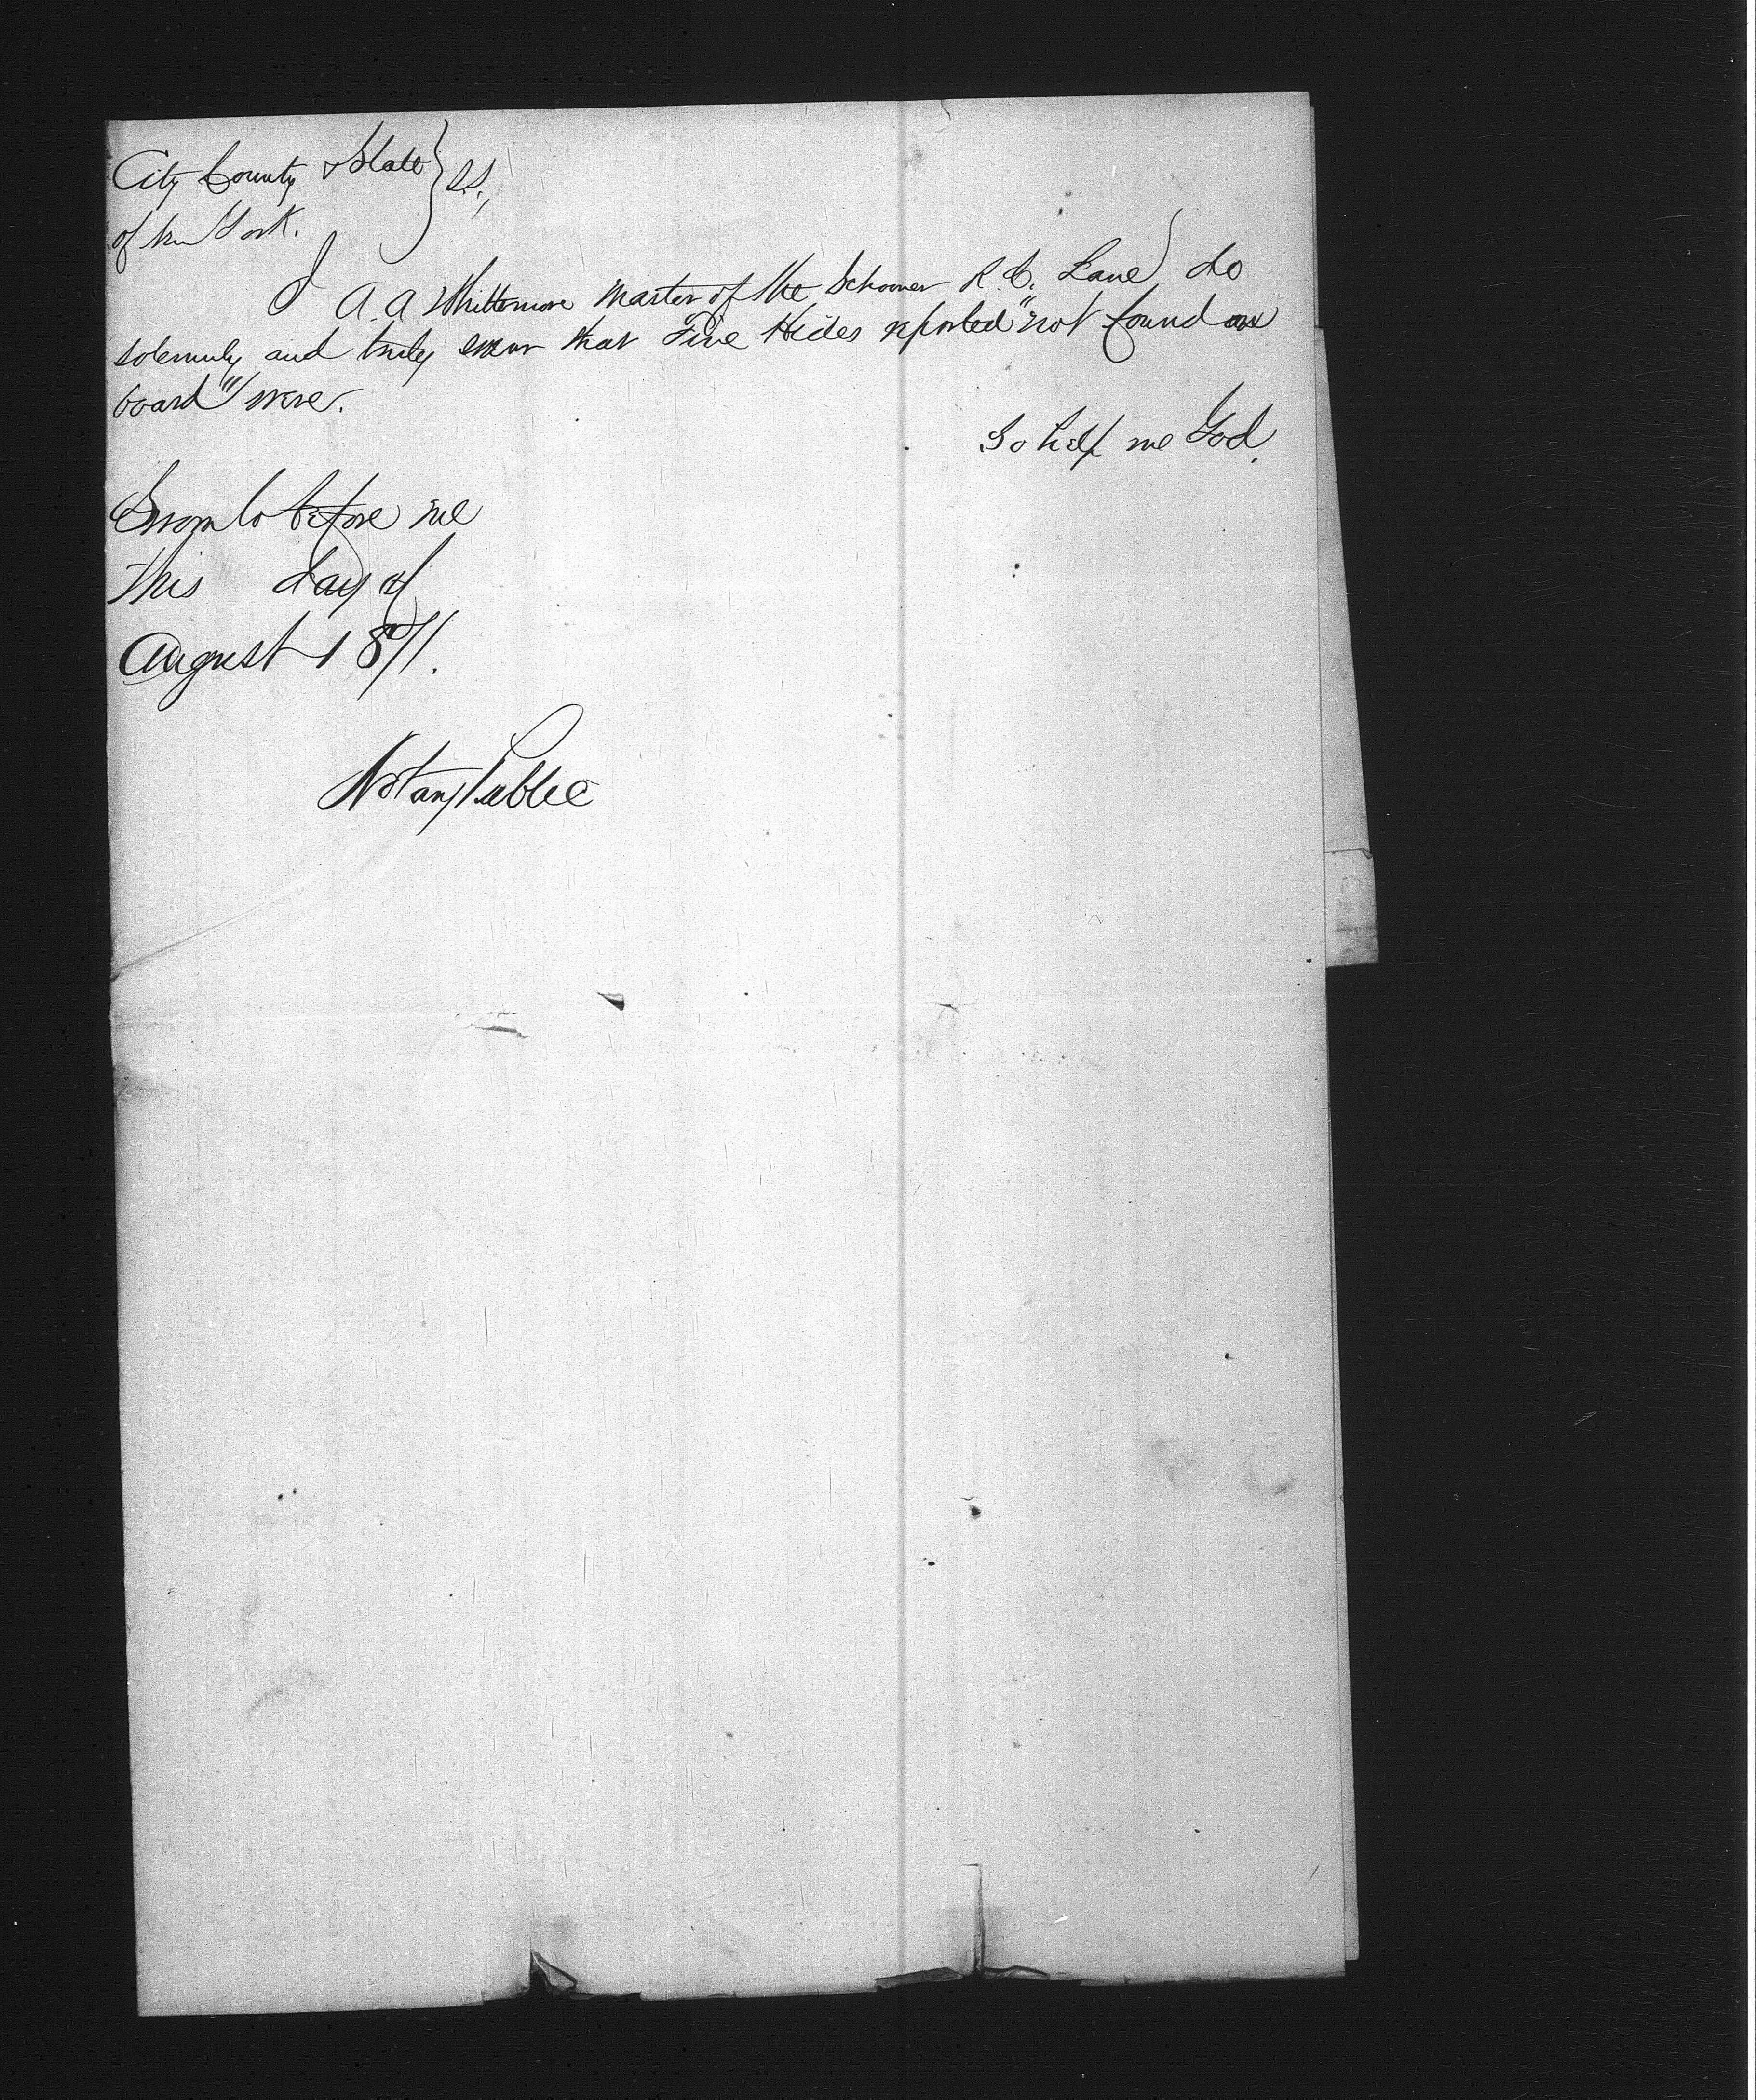 City County & State } S.S.,
of New York.
I A. A Whittemore Master of the Schooner R. C. Lane do
solemnly and truly swear that Five Hides reported "not found on
board" were.
So help me God.
Sworn to before me
this day of
August 1871.
Notary Public